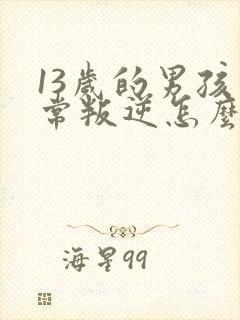 13歲的男孩
常叛逆怎麼
海星99